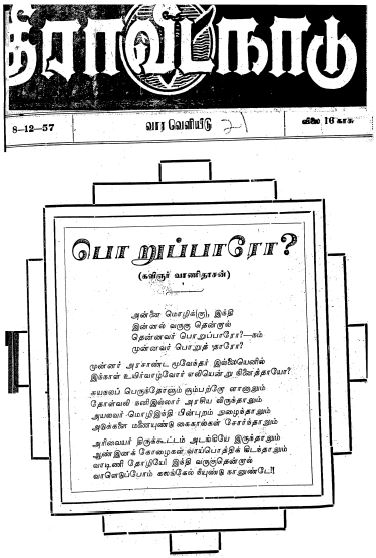 திராவிடநாடு
8-12-57
வார வெளியீடு
21
விலை 16 காசு
பொறுப்பாரோ?
(கவிஞர் வாணிதாசன்)
அன்னை மொழிக்(கு), இந்தி
இன்னல் வருகு தென்றால்
தென்னவர் பொறுப்பாரோ?—நம்
முன்னவர் பொறுத் தாரோ?
முன்னர் அரசாண்ட மூவேந்தர் இல்லையெனில்
இந்நாள் உயிர்வாழ்வோர் எலியென்று நினைத்தாயோ?
சுயநலப் பெருந்தோளும்
தோள்வலி கனிஇல்லார் அரசிய லிருந்தாலும்
அயலவர் மொழிஇந்தி பின்புறம் நுழைந்தாலும்
அடுக்களை மணையுண்டு கைகால்கள் சோர்ந்தாலும்
அரிவையர் திருக்கூட்டம் அடங்கியே இருந்தாலும்
ஆண்இனக் கோழைகள் வாய்பொத்திக் கிடந்தாலும்
வாடிணி தோழியே! இந்தி வருகுதென்றால்
வாளெடுப்போம் கலங்கேல் நீயுண்டு நானுண்டே!!